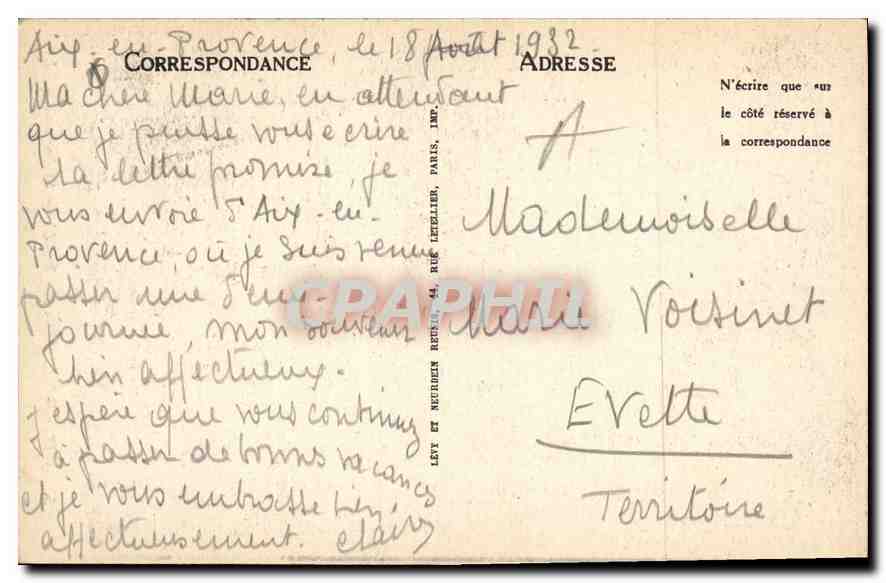 Aix-en-Provence, le 18 Août 1932.
CORRESPONDANCE
Ma chère Marie, en attendant
que je puisse vous écrire
la lettre promise, je
vous envoie d'Aix-en-
Provence, où je suis venue
passer une demi-
journée, mon souvenir
bien affectueux.
J'espère que vous continuez
à passer de bonnes vacances
et je vous embrasse bien
affectueusement.
LÉVY ET NEURDEIN RÉUNIS, 44, RUE LETELLIER, PARIS, IMP.
ADRESSE
N'écrire que sur
le côté réservé à
la correspondance
A
Mademoiselle
Marie Voisinet
Evette
Territoire
CPAPHIL